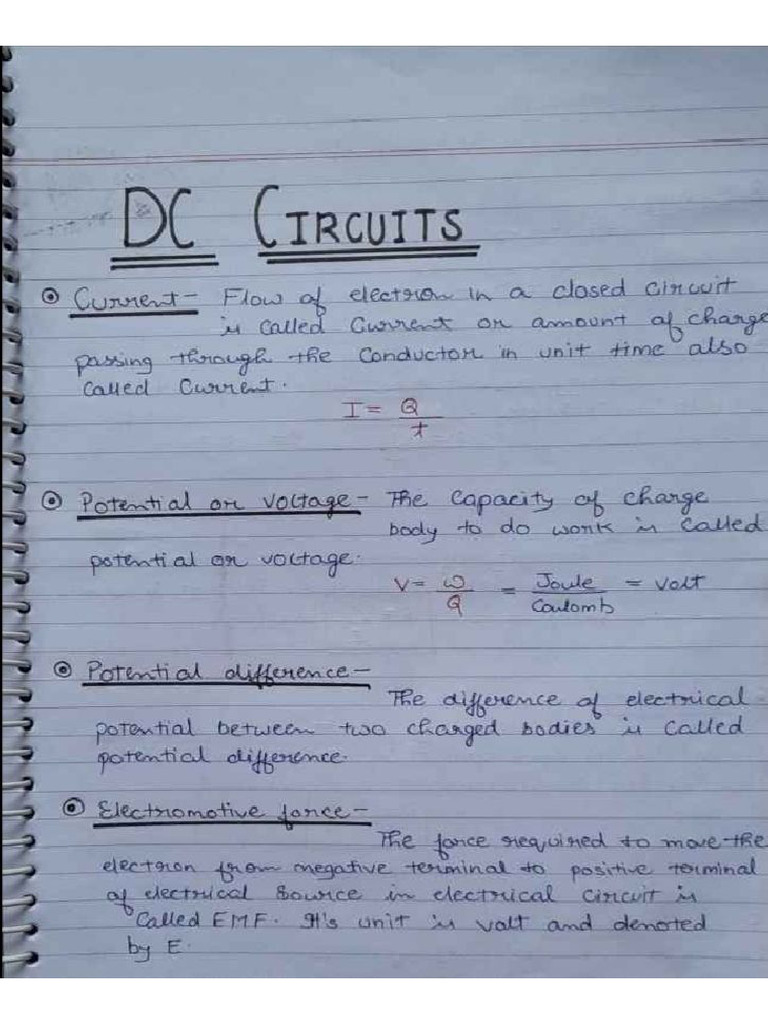 DC CIRCUITS
Current - Flow of electron in a closed circuit
is called Current or amount of charge
passing through the conductor in unit time also
called Current.
I = Q
t
Potential or voltage - The capacity of charge
body to do work is called
potential or voltage.
V = W = Joule = volt
Q Coulomb
Potential difference -
The difference of electrical
potential between two charged bodies is called
potential difference.
Electromotive force -
The force required to move the
electron from negative terminal to positive terminal
of electrical source in electrical circuit is
called EMF. It's unit is valt and denoted
by E.